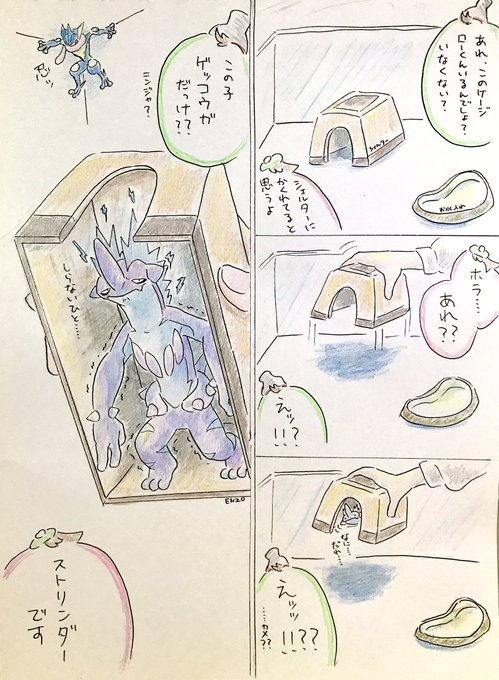 あれ、このケージ
ローくんいるんでしょ?
いなくない?
シェルター
シェルターに
かくれてると
思うよ
おみず入れ
ホラ……
あれ??
えッ?
!!?
なに……
だれ……
えッッ??
!!?
……カメ??
この子
ゲッコウガ
だっけ??
ニンジャ?
忍ッ
しらないひと……
ENZO
ストリンダー
です